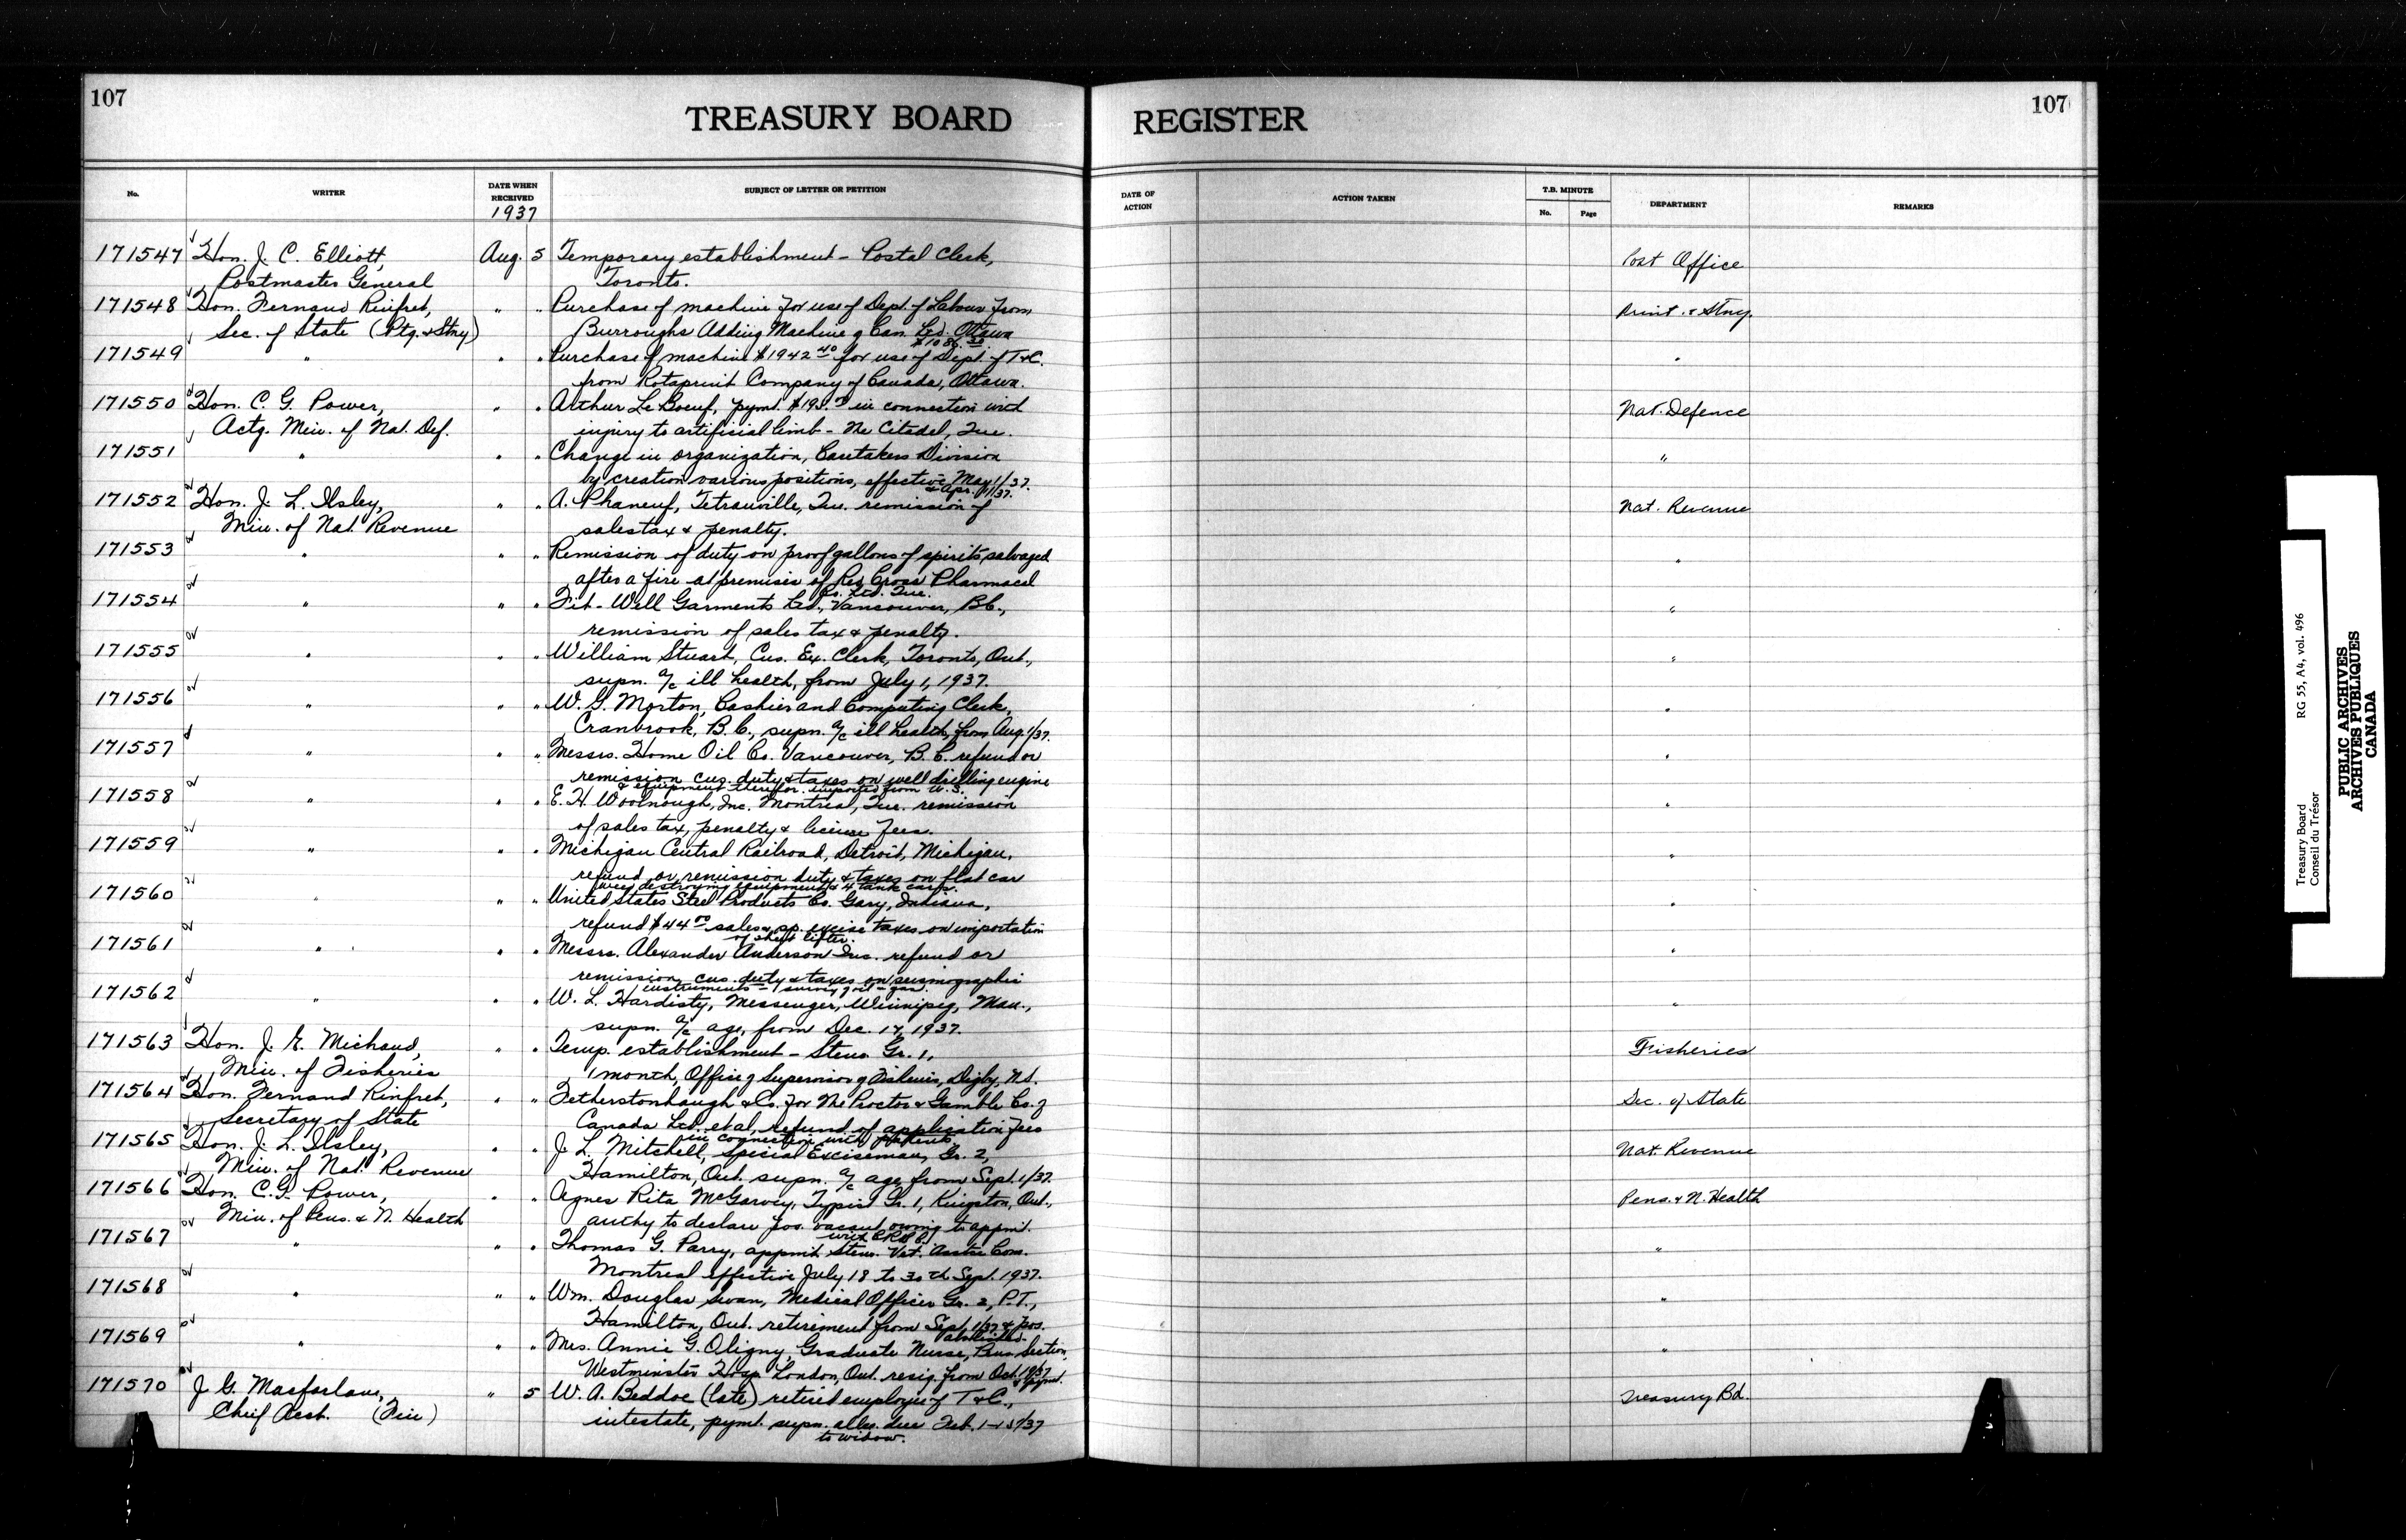 107
TREASURY BOARD
REGISTER
107
No.
WRITER
DATE WHEN
RECEIVED
1937
SUBJECT OF LETTER OR PETITION
DATE OF
ACTION
ACTION TAKEN
T.B. MINUTE
No.
Page
DEPARTMENT
REMARKS
171547 Hon. J. C. Elliott, Aug. 5 Temporary establishment - Postal Clerk, Post Office
Postmaster General Toronto.
171548 Hon. Fernand Rinfret, " " Purchase of machine for use of Dept. of Labour from Print. & Stny.
Sec. of State (Ptg. & Stny) Burroughs Adding Machine of Can. Ltd. Ottawa
171549 " " " Purchase of machine $1942.40 for use of Dept. of T&C. "
from Rotaprint Company of Canada, Ottawa.
171550 Hon. C. G. Power, " " Arthur Le Boeuf, pymt. in connection with Nat. Defence
Actg. Min. of Nat. Def. injury to artificial limb - The Citadel, Que.
171551 " " " Change in organization, Caretakers Division "
by creation various positions, effective May 1/37.
& Apr. 1/37.
171552 Hon. J. L. Ilsley, " " A. Phaneuf, Tetrauville, Que. remission of Nat. Revenue
Min. of Nat. Revenue sales tax & penalty.
171553 " " " Remission of duty on proof gallons of spirits salvaged "
after a fire at premises of Red Cross Pharmacal
Co. Ltd. Que.
171554 " " " Fit-Well Garments Ltd., Vancouver, B.C., "
remission of sales tax & penalty.
171555 " " " William Stuart, Cus. Ex. Clerk, Toronto, Ont., "
supn. a/c ill health, from July 1, 1937.
171556 " " " W. G. Morton, Cashier and Computing Clerk, "
Cranbrook, B.C., supn. a/c ill health, from Aug. 1/37.
171557 " " " Messrs. Home Oil Co. Vancouver, B.C. refund or "
remission cus. duty & taxes on well drilling engine
& equipment therefor imported from U.S.
171558 " " " E. H. Woolnough, Inc. Montreal, Que. remission "
of sales tax, penalty & license fees.
171559 " " " Michigan Central Railroad, Detroit, Michigan, "
refund or remission duty & taxes on flat car
weed destroying equipment & 4 tank cars.
171560 " " " United States Steel Products Co. Gary, Indiana, "
refund $44.00 sales & sp. excise taxes on importation
of sheet lifter.
171561 " " " Messrs. Alexander Anderson Inc. refund or "
remission cus. duty & taxes on seismographic
instruments - survey oil - gas.
171562 " " " W. L. Hardisty, Messenger, Winnipeg, Man., "
supn. a/c age, from Dec. 17, 1937.
171563 Hon. J. E. Michaud, " " Temp. establishment - Steno. Gr. 1, Fisheries
Min. of Fisheries 1 month, Office of Supervisor of Fisheries, Digby, N.S.
171564 Hon. Fernand Rinfret, " " Fetherstonhaugh & Co. for The Procter & Gamble Co. of Sec. of State
Secretary of State Canada Ltd. et al, refund of application fees
in connection with patents.
171565 Hon. J. L. Ilsley, " " J. L. Mitchell, Special Exciseman, Gr. 2, Nat. Revenue
Min. of Nat. Revenue Hamilton, Ont. supn. a/c age, from Sept. 1/37.
171566 Hon. C. G. Power, " " Agnes Rita McGarvey, Typist Gr. 1, Kingston, Ont., Pens. & N. Health
Min. of Pens. & N. Health authy to declare pos. vacant owing to appmt.
171567 " " " Thomas G. Parry, appmt. Steno. Vet. Asstce Com. "
Montreal effective July 18 to 30th Sept. 1937.
171568 " " " Wm. Douglas Swan, Medical Officer Gr. 2, P.T., "
Hamilton, Ont. retirement from Sept. 1/37 & pos.
abolished.
171569 " " " Mrs. Annie G. Oligny, Graduate Nurse, Pens. Section, "
Westminster Hosp. London, Ont. resig. from Oct.
171570 J. G. Macfarlane, " 5 W. A. Beddoe (late) retired employee of T&C., Treasury Bd.
Chief Acct. (Fin) intestate, pymt. supn. allce. due Feb. 1-15/37
to widow.
Treasury Board
Conseil du Trésor
RG 55, A4, vol. 496
PUBLIC ARCHIVES
ARCHIVES PUBLIQUES
CANADA